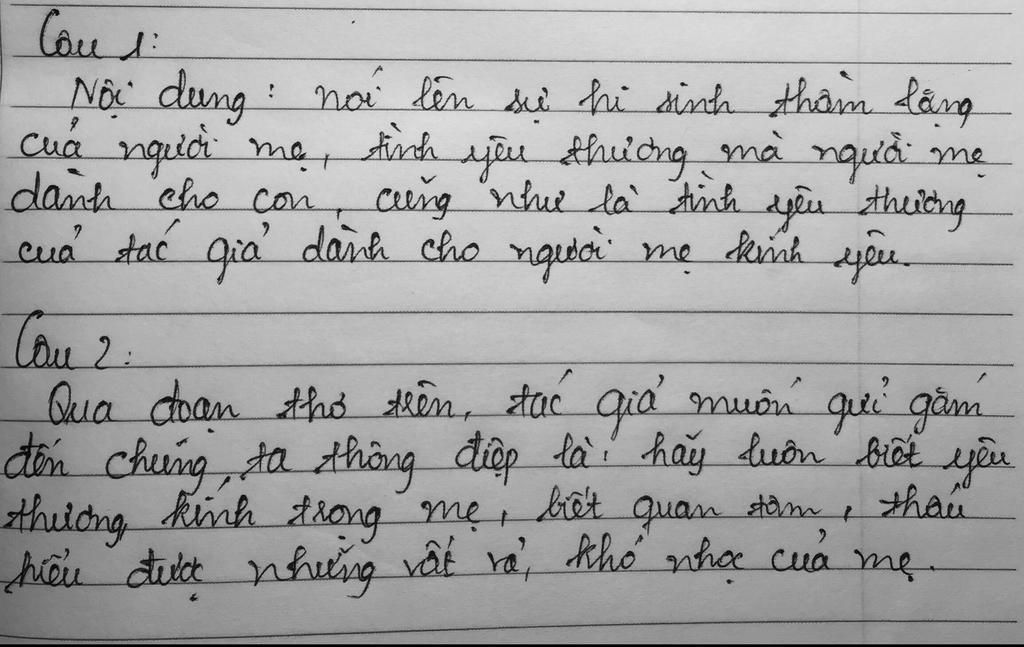 Câu 1:
Nội dung: nói lên sự hi sinh thầm lặng
của người mẹ, tình yêu thương mà người mẹ
dành cho con, cũng như là tình yêu thương
của tác giả dành cho người mẹ kính yêu.
Câu 2:
Qua đoạn thơ trên, tác giả muốn gửi gắm
đến chúng ta thông điệp là: hãy luôn biết yêu
thương, kính trọng mẹ, biết quan tâm, thấu
hiểu được những vất vả, khó nhọc của mẹ.